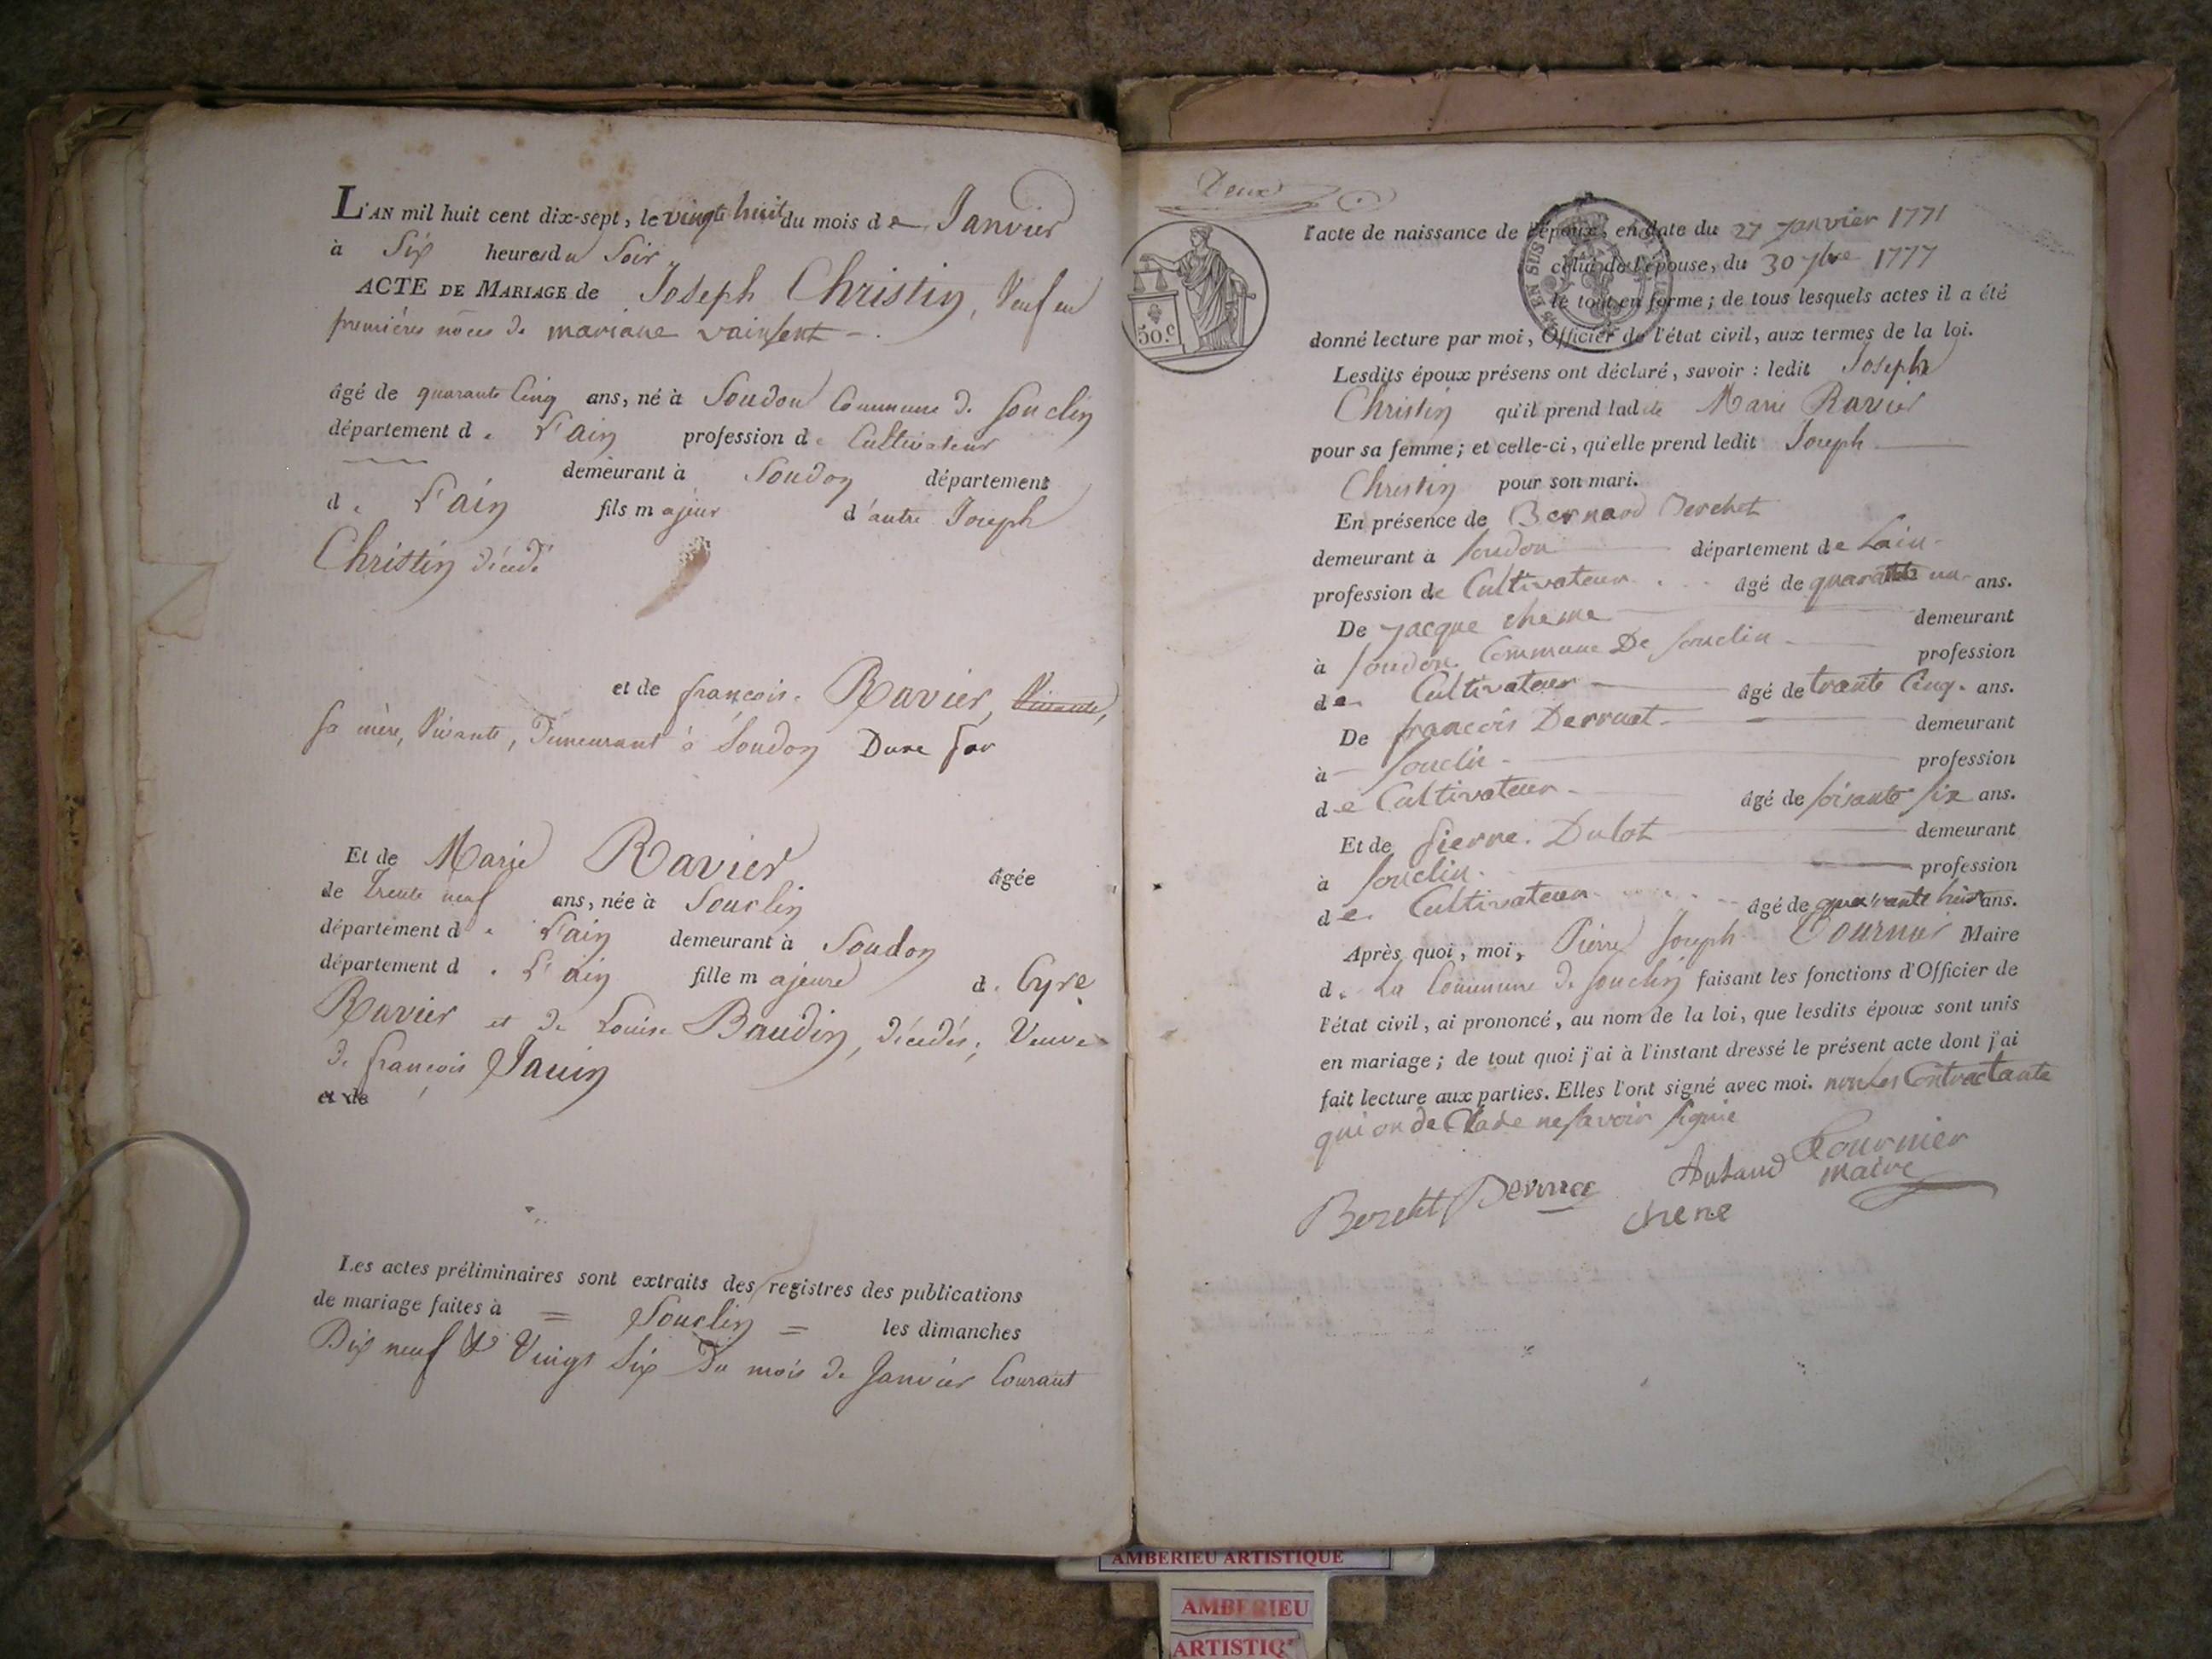 L'AN mil huit cent dix-sept, le vingt huit du mois de Janvier
à Six heures du Soir
ACTE DE MARIAGE de Joseph Christin, Veuf en
premières nôces de mariane vainsent
âgé de quarante Cinq ans, né à Soudon Commune de Souclin
département de L'ain profession de Cultivateur
demeurant à Soudon département
de L'ain fils majeur d'autre Joseph
Christin décédé
et de françoise Ravier, Vivante,
Sa mère, Vivante, Demeurant à Soudon
Et de Marie Ravier âgée
de Trente neuf ans, née à Souclin
département de L'ain demeurant à Soudon
département de L'ain fille majeure de Cyre
Ravier et de Louise Baudin, décédés, Veuve
de françois Jauin
et de
Les actes préliminaires sont extraits des registres des publications
de mariage faites à = Souclin = les dimanches
Dix neuf & Vingt Six Du mois de Janvier Courant
Deux
50.c
EN SUS
l'acte de naissance de l'époux, en date du 27 Janvier 1771
celui de l'épouse, du 30 7bre 1777
le tout en forme; de tous lesquels actes il a été
donné lecture par moi, Officier de l'état civil, aux termes de la loi.
Lesdits époux présens ont déclaré, savoir : ledit Joseph
Christin qu'il prend ladite Marie Ravier
pour sa femme; et celle-ci, qu'elle prend ledit Joseph
Christin pour son mari.
En présence de Bernard Berchet
demeurant à Soudon département de Lain
profession de Cultivateur âgé de quarante un ans.
De Jacque chene demeurant
à Soudon Commune De Souclin profession
de Cultivateur âgé de trante Cinq ans.
De francois Derruat demeurant
à Souclin profession
de Cultivateur âgé de soisante six ans.
Et de Pierre Dulot demeurant
à Souclin profession
de Cultivateur âgé de quarante huit ans.
Après quoi, moi, Pierre Joseph Tournier Maire
de La Commune de Souclin faisant les fonctions d'Officier de
l'état civil, ai prononcé, au nom de la loi, que lesdits époux sont unis
en mariage; de tout quoi j'ai à l'instant dressé le présent acte dont j'ai
fait lecture aux parties. Elles l'ont signé avec moi. non Les Contractante
qui on de Clare ne savoir signie
Tournier
maire
chene
AMBERIEU ARTISTIQUE
AMBERIEU
ARTISTIQ